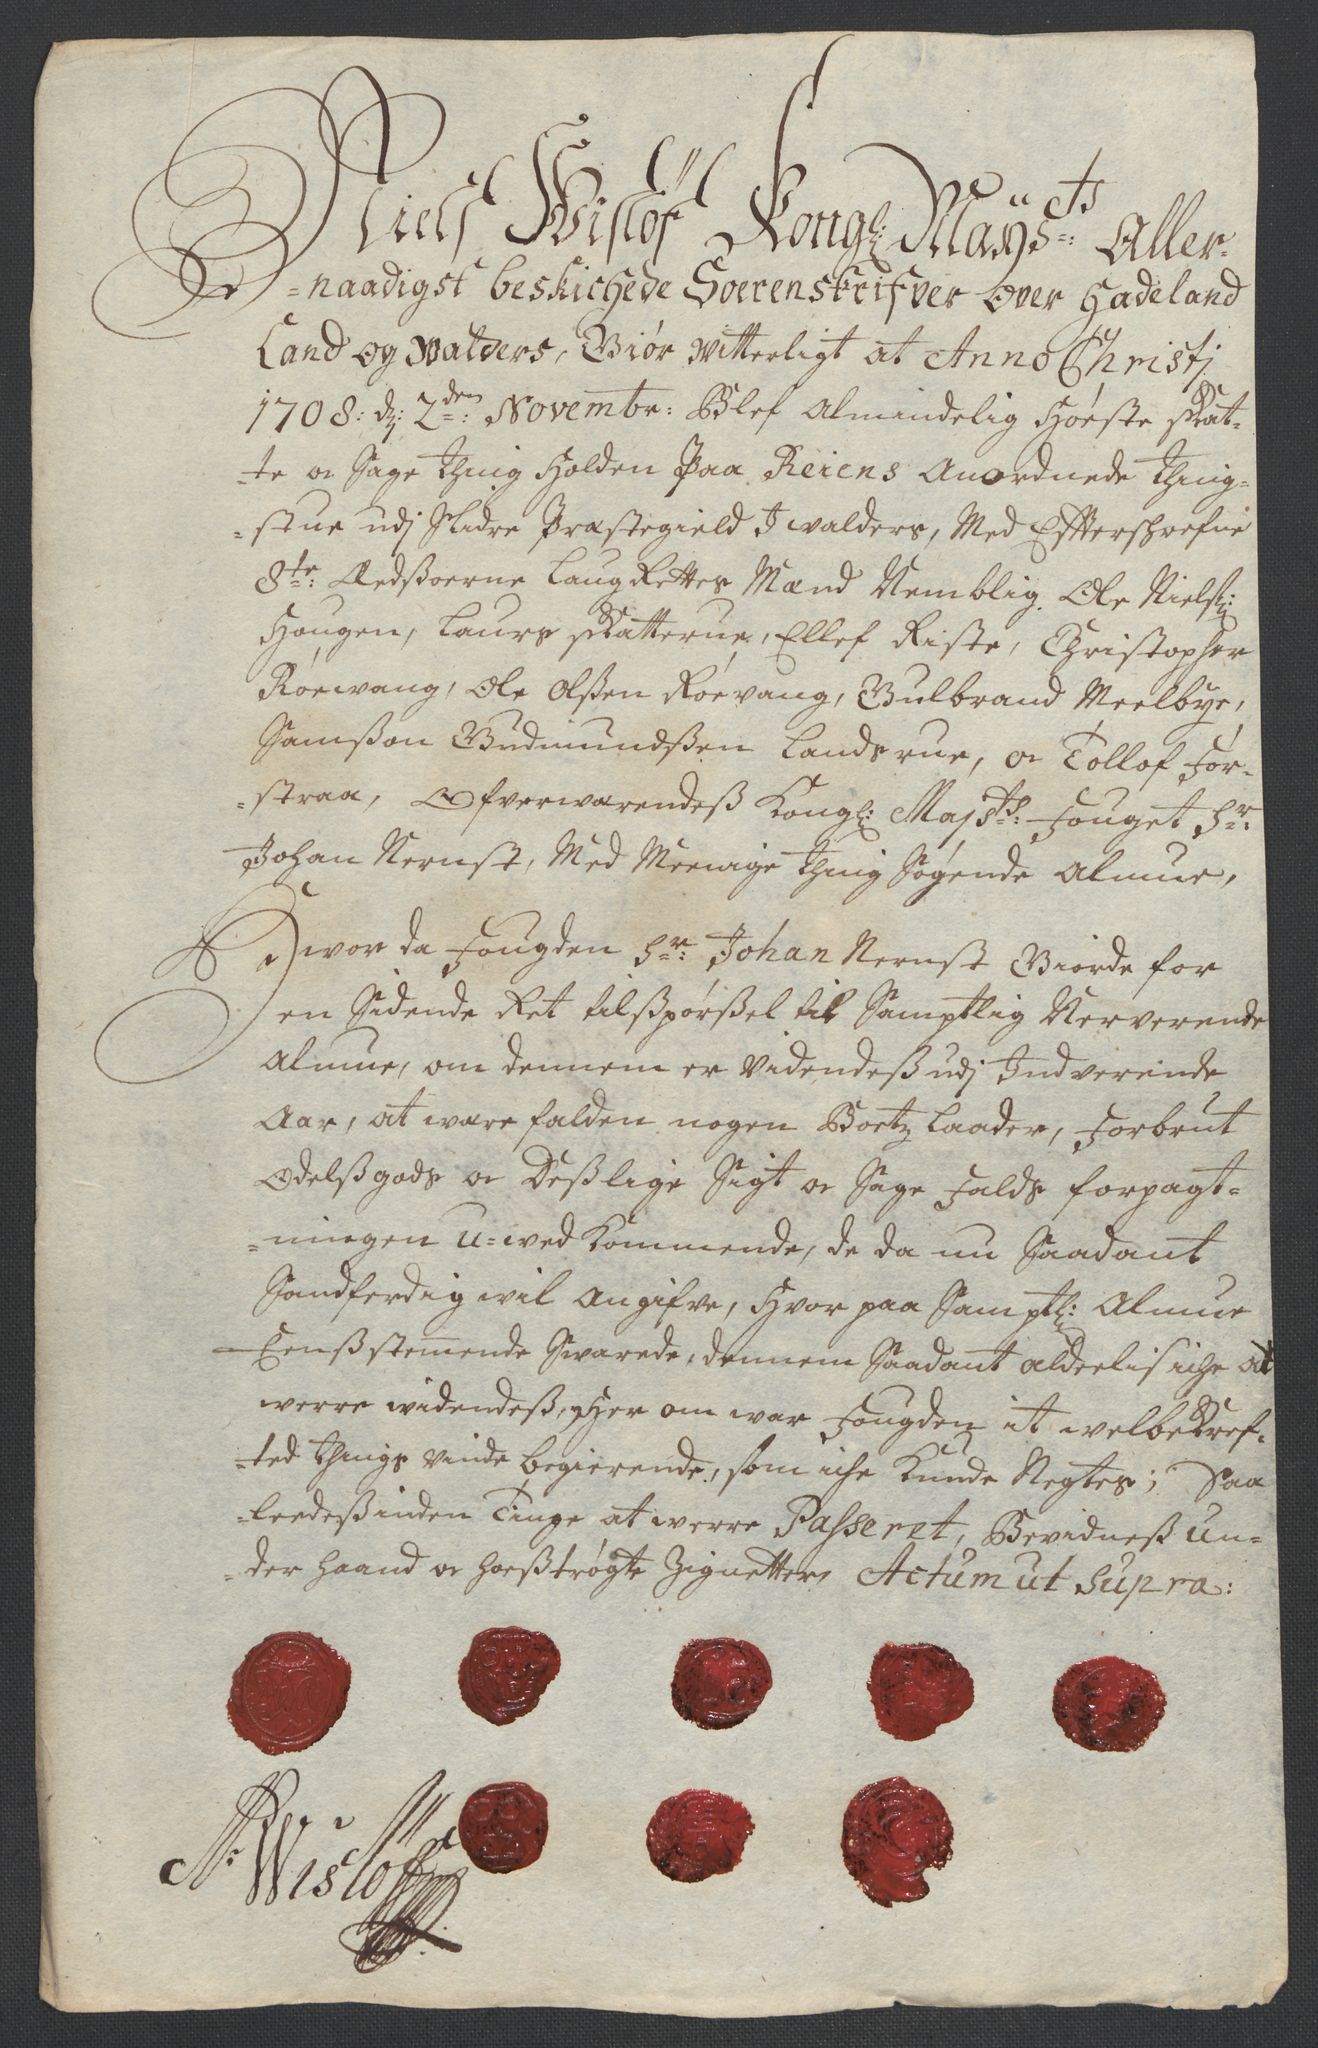 Niels Wislöf Kongl: Mayst:s Aller-
=naadigst beskichede Soerenskrifver over Hadeland
Land og Walders, Giør Witterligt at Anno Christj
1708: dj: 2den: Novembr: Blef Almindelig Høste Skat-
=te oc Sage thing Holden paa Reiens Anordnede thing=
=stue udj Slidre Præstegield J Walders, Med Effterschrefne
8te: Ædsoerne Laug Rettes Mænd Nemblig. Ole Nielsz:
Hougen, Laurs Skatterue, Ellef Riste, Christopher
Röevang, Ole Olßen Röevang, Gulbrand Meelbye,
Samßon Gudmundßen Landsrue, oc Tollof For-
=straa, Ofverwærendeß Kongl: Mayst:s: Fouget Hr:
Johan Nernst, Med Meenige thing Søgende Almue,
Hwor da Fougden Hr: Johan Nernst Giorde for
en Sidende Ret tilßpørßel til Samptlig Nerverende
Almue, om dennem er Videndeß udj Indverende
Aar, at være falden nogen Boetz Laader, Forbrut
Odelßgods oc Deßlige Sigt oc Sage Falds forpagt=
=ningen U=wed Kommende, de da nu Saadant
Sandferdig wil Angifve, Hvor paa Samptl: Almue
Eenßstemmende Swarede, dennem Saadant alderlis iche at
werre widendeß, Her om war Fougden it welbeKref-
=ted things vinde begierende, som iche Kunde Negtes; Saa
=leedeß inden Tinge at werre Passeret, Bevidneß un=
=der haand oc hoeßtrøgte Zignetter, Actum ut supra:
N: Wislöff